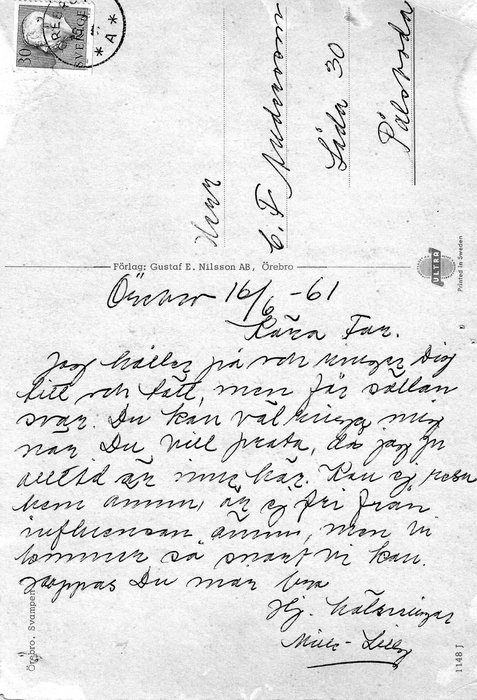 30
SVERIGE
* A *
Herr
C. F. Andersson
Låda 30
Pålsboda
Förlag: Gustaf E. Nilsson AB, Örebro
ULTRA
Printed in Sweden
Örebro 16/6 -61
Kära Far.
Jag håller på och ringer Dig
titt och tätt, men får sällan
svar. Du kan väl ringa mig
när Du vill prata, då jag ju
alltid är inne här. Kan ej resa
hem ännu, är ej fri från
influensan ännu, men vi
kommer så snart vi kan.
Hoppas Du mår bra
Hj. hälsningar
Lilly
Örebro. Svampen
1148 J